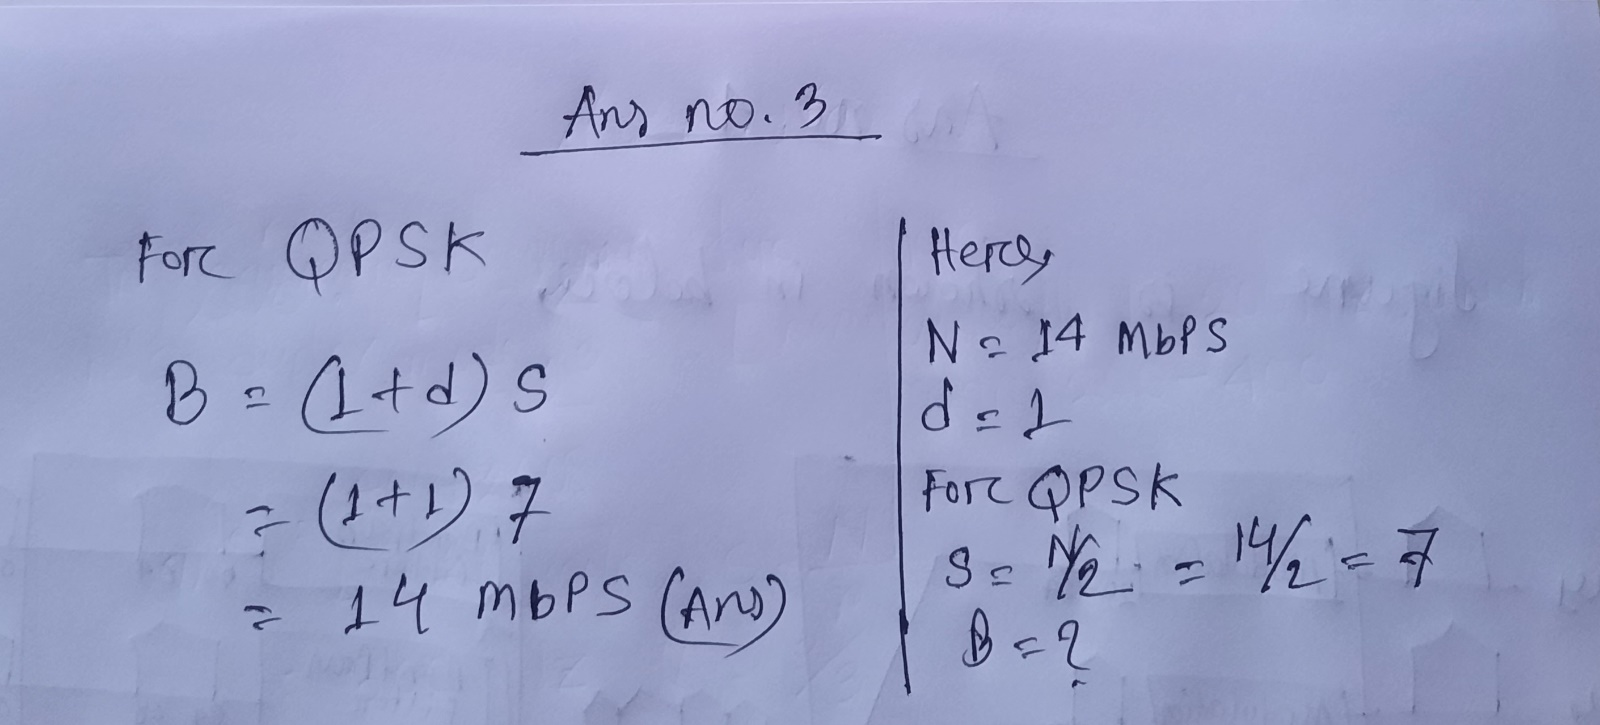 Ans no. 3
For QPSK
B = (1+d) S
= (1+1) 7
= 14 MbPS (Ans)
Here,
N = 14 MbPS
d = 1
For QPSK
S = N/2 = 14/2 = 7
B = ?